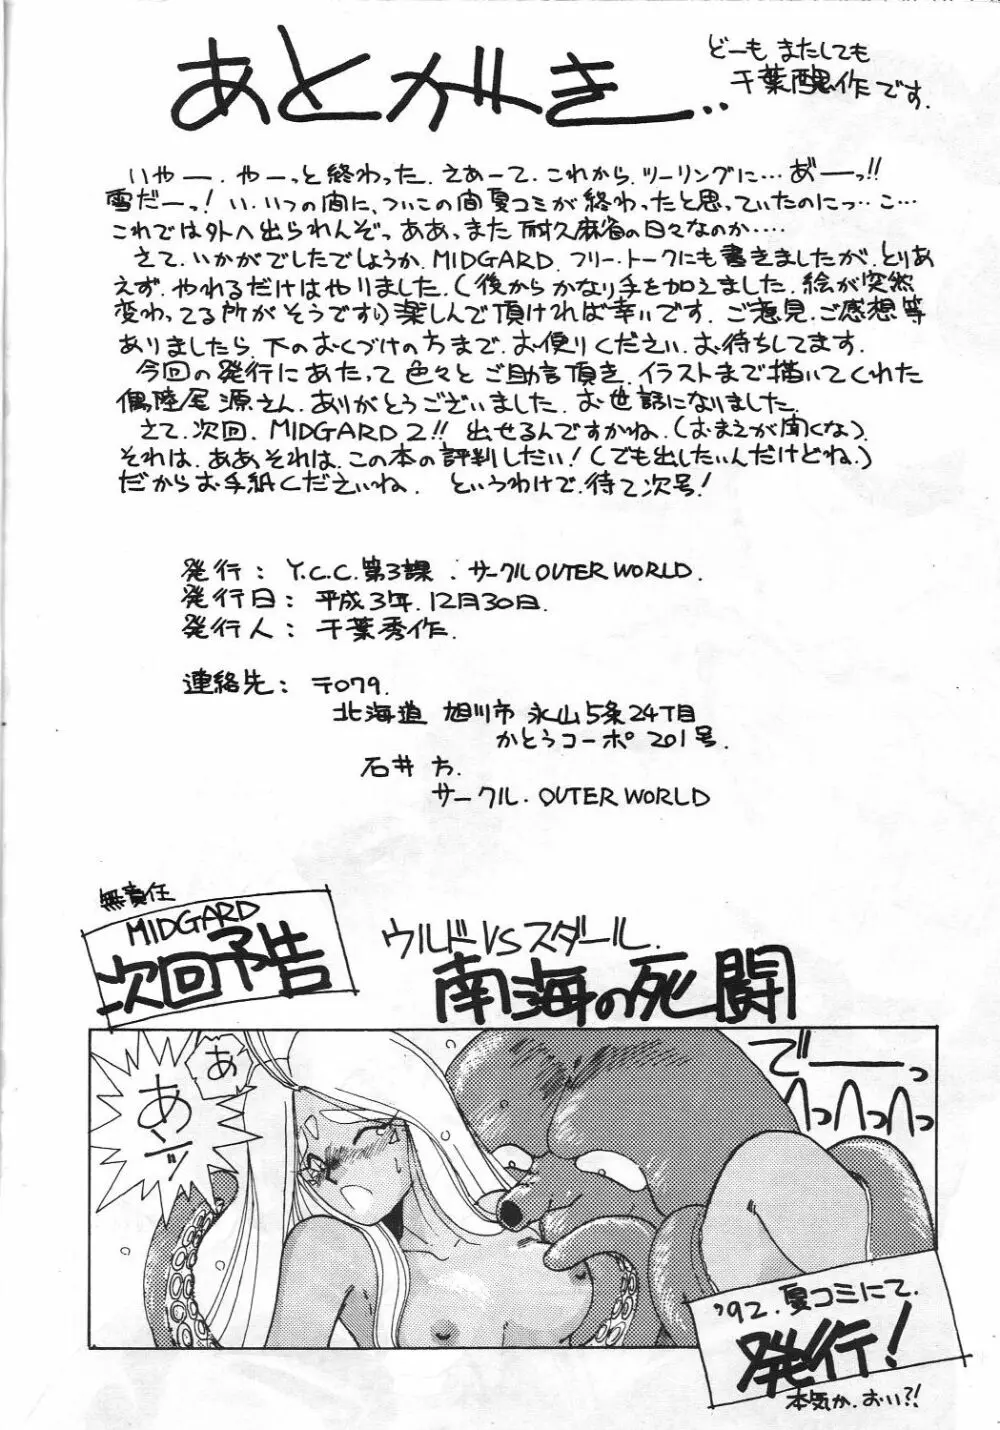 あとがき..
どーも またしても
千葉醜作です.
いやー. やーっと終わった. さあーて. これから. ツーリングに… あ゛ーっ!!
雪だーっ! い. いつの間に、ついこの間夏コミが終わったと思っていたのにっ… こ…
これでは外へ出られんぞっ ああっまた 耐久麻雀の日々なのか….
さて. いかがでしたでしょうか. MIDGARD. フリー.トークにも書きましたが. とりあ
えず. やれるだけはやりました. (後からかなり手を加えました. 絵が突然
変わってる所がそうです) 楽しんで頂ければ幸いです. ご意見. ご感想等
ありましたら. 下のおくづけのちまで. お便りください. お待ちしてます.
今回の発行にあたって 色々とご助言頂き. イラストまで描いてくれた
偶陸尾 源さん. ありがとうございました. お世話になりました.
さて. 次回. MIDGARD 2!! 出せるんですかね. (おまえが聞くな).
それは. ああそれは. この本の評判しだい! (でも出したいんだけどね.)
だからお手紙くださいね. というわけで. 待て次号!
発行: Y.C.C.第3課. サークルOUTER WORLD.
発行日: 平成3年. 12月30日.
発行人: 千葉秀作.
連絡先: 〒079.
北海道 旭川市 永山5条24丁目
かとうコーポ 201号.
石井 方.
サークル. OUTER WORLD
無責任
MIDGARD
次回予告
ウルドVSスダール.
南海の死闘
あ
あンッ
でーーっ
へっへっへっ
'92. 夏コミにて.
発行!
本気か. おい?!